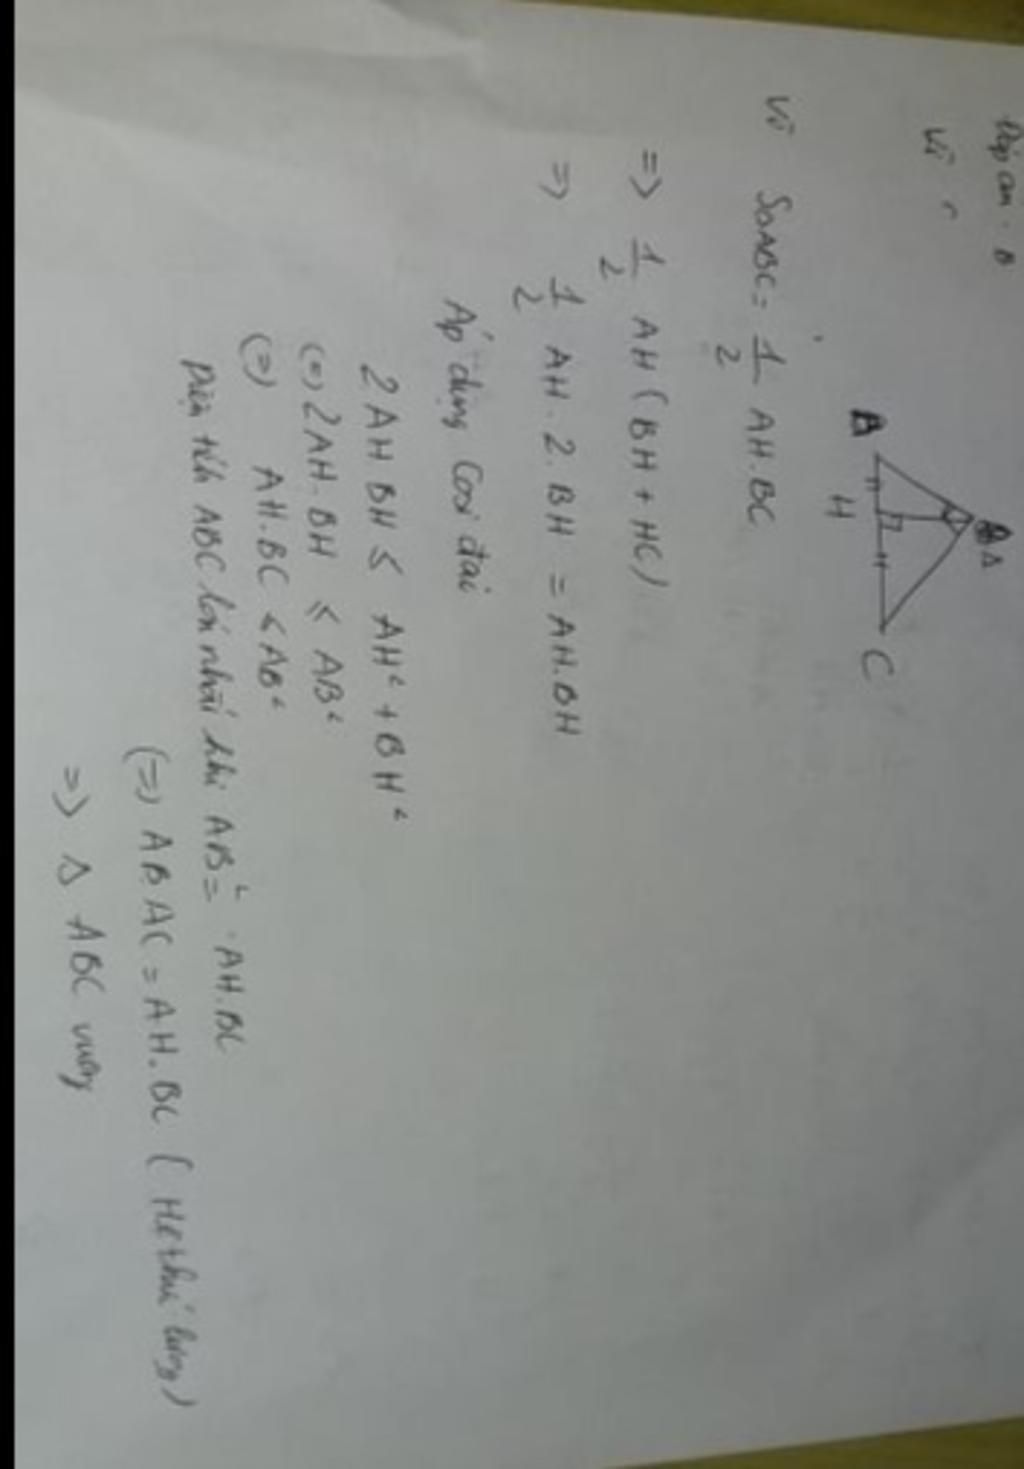 Đáp án: B
Vì
A
B H C
Vì S∆ABC = 1/2 AH.BC
=> 1/2 AH (BH + HC)
=> 1/2 AH. 2. BH = AH.BH
Áp dụng Cosi đai
2AH.BH ≤ AH² + BH²
(=) 2AH.BH ≤ AB²
(=) AH.BC ≤ AB²
Diện tích ABC lớn nhất khi AB² = AH.BC
(=) AB.AC = AH.BC (Hệ thức lượng)
=> ∆ ABC vuông